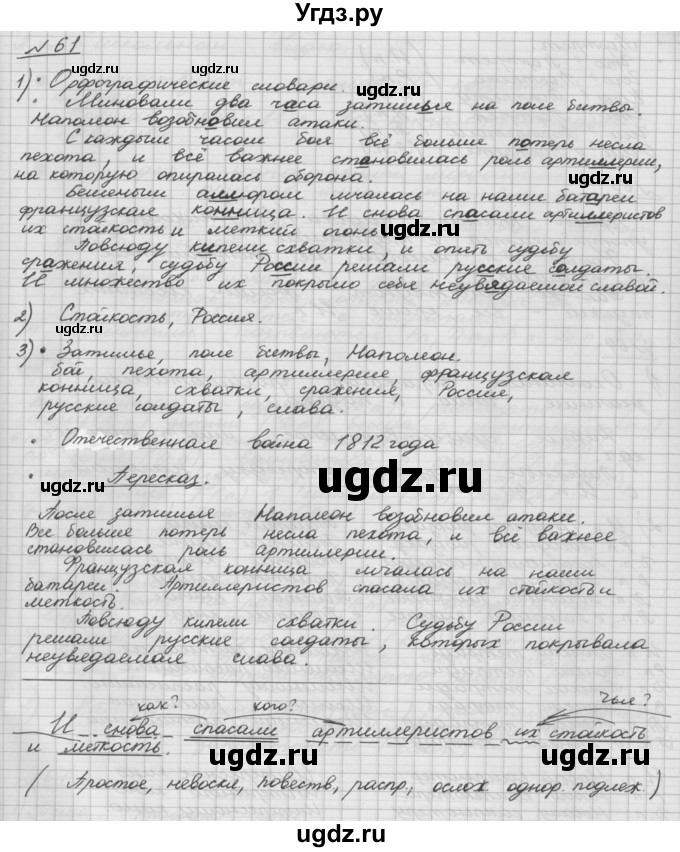 Угдз.ру
№ 61
1) • Орфографические словари.
• Миновали два часа затишья на поле битвы.
Наполеон возобновил атаки.
С каждым часом боя всё больше потерь несла
пехота, и всё важнее становилась роль артиллерии,
на которую опиралась оборона.
Бешеным аллюром мчалась на наши батареи
французская конница. И снова спасали артиллеристов
их стойкость и меткий огонь
Повсюду кипели схватки, и опять судьбу
сражения, судьбу России решали русские солдаты.
И множество их покрыло себя неувядаемой славой.
2) Стойкость, Россия.
3) • Затишье, поле битвы, Наполеон
бой, пехота, артиллерия, французская
конница, схватки, сражения, Россия,
русские солдаты, слава.
• Отечественная война 1812 года
• Пересказ.
После затишья Наполеон возобновил атаки.
Все больше потерь несла пехота, и всё важнее
становилась роль артиллерии.
Французская конница мчалась на наши
батареи. Артиллеристов спасала их стойкость и
меткость.
Повсюду кипели схватки. Судьбу России
решали русские солдаты, которых покрывала
неувядаемая слава.
как? кого? чья?
И снова спасали артиллеристов их стойкость
и меткость.
(Простое, невоскл, повеств, распр, ослож. однор. подлеж.)
ugdz.ru
ugdz.ru
ugdz.ru
ugdz.ru
ugdz.ru
ugdz.ru
ugdz.ru
ugdz.ru
ugdz.ru
ugdz.ru
ugdz.ru
ugdz.ru
ugdz.ru
ugdz.ru